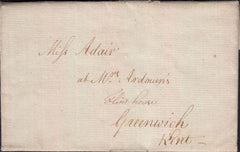 Miss Adair
at Mrs Ardouin's
house
Greenwich
Kent